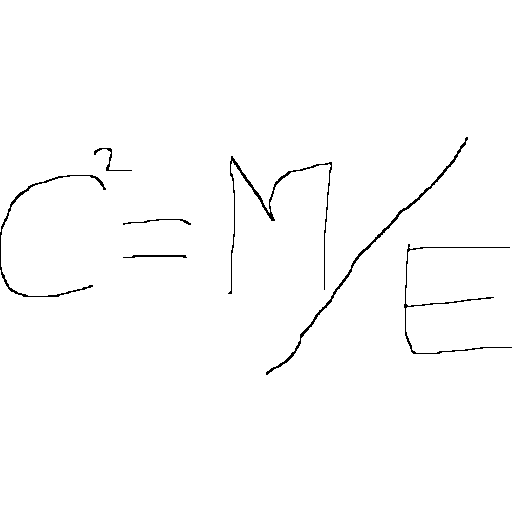 C² = M/E